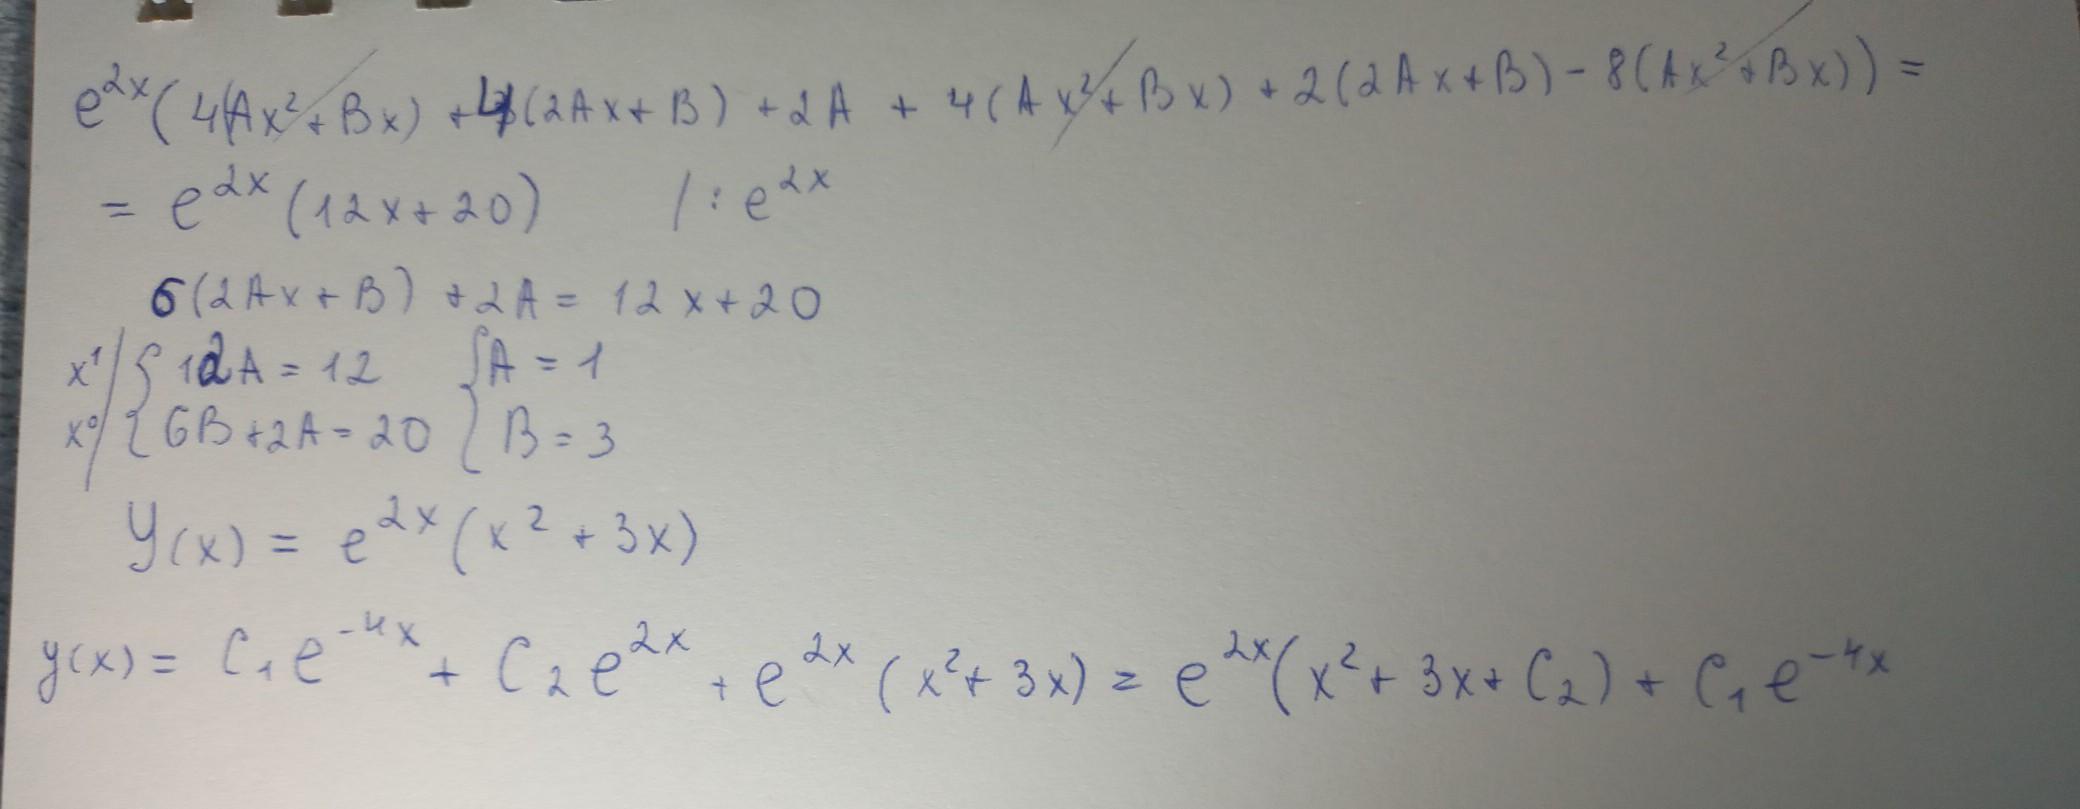 e^{2x}(4(Ax²+Bx)+4(2Ax+B)+2A+4(Ax²+Bx)+2(2Ax+B)-8(Ax²+Bx))=
= e^{2x}(12x+20) /:e^{2x}
6(2Ax+B)+2A=12x+20
x¹/ { 12A=12 { A=1
x⁰/ { 6B+2A=20 { B=3
Y(x)=e^{2x}(x²+3x)
y(x)=C₁e^{-4x}+C₂e^{2x}+e^{2x}(x²+3x)=e^{2x}(x²+3x+C₂)+C₁e^{-4x}